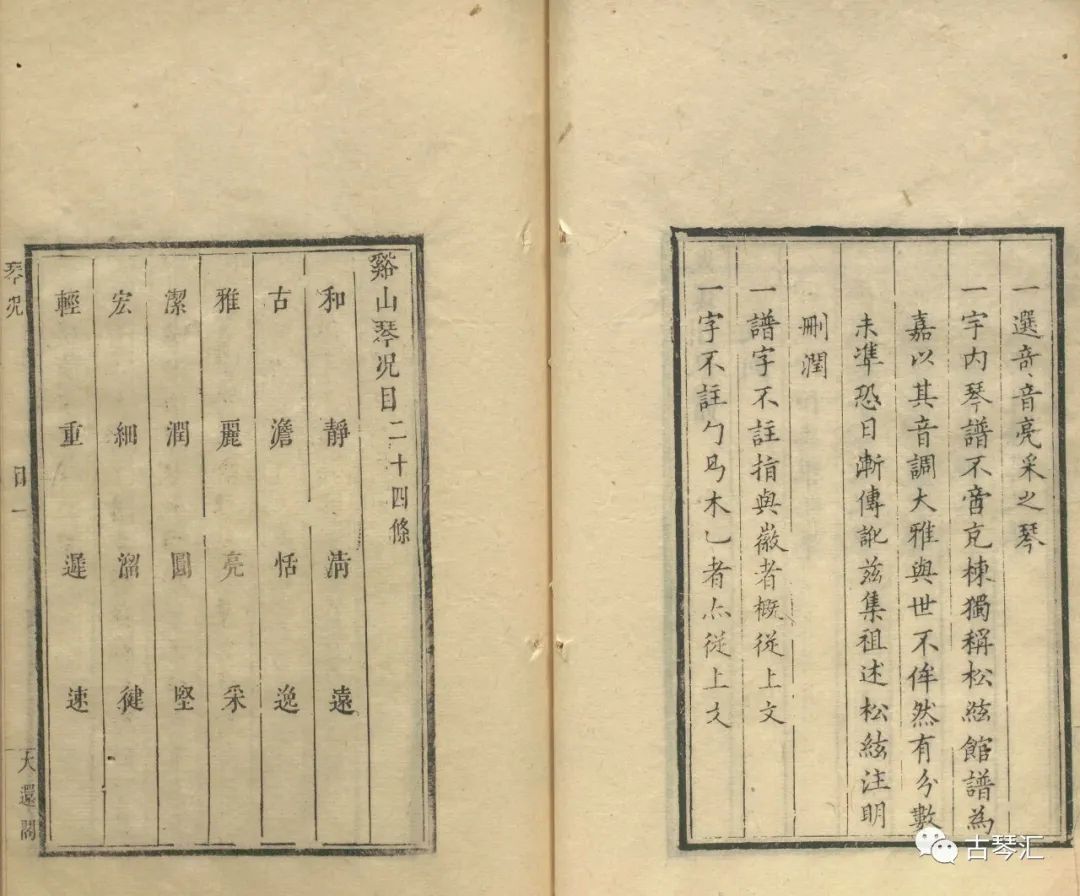 一選竒音亮采之琴
一宇内琴譜不啻克棟獨稱松絃館譜為
嘉以其音調大雅與世不侔然有分數
未準恐日漸傳訛兹集祖述松絃注明
刪潤
一譜字不註指與徽者概從上文
一字不註勹㔾木乚者亦從上文
谿山琴况目二十四條
和 靜 清 遠
古 澹 恬 逸
雅 麗 亮 采
潔 潤 圓 堅
宏 細 溜 徤
輕 重 遲 速
琴况
目一
大還閣
古琴汇